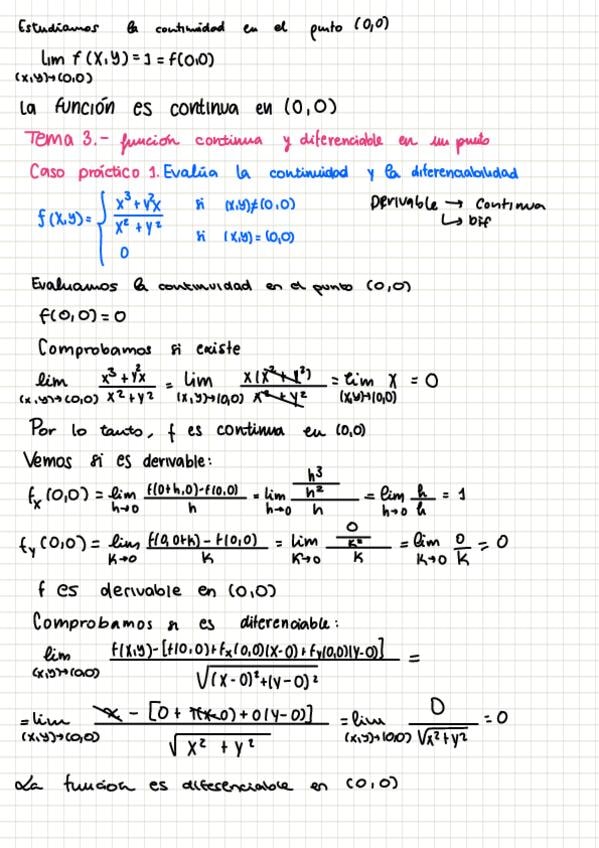 Estudiamos la continuidad en el punto (0,0)
lim f(x,y) = 1 = f(0,0)
(x,y)→(0,0)
La función es continua en (0,0)
Tema 3.- función continua y diferenciable en un punto
Caso práctico 1. Evalúa la continuidad y la diferenciabilidad
f(x,y) = { (x³+y²x)/(x²+y²) si (x,y)≠(0,0)
0 si (x,y)=(0,0)
Derivable → continua
↳ Dif
Evaluamos la continuidad en el punto (0,0)
f(0,0)=0
Comprobamos si existe
lim (x,y)→(0,0) (x³+y²x)/(x²+y²) = lim (x,y)→(0,0) x(x²+y²)/(x²+y²) = lim (x,y)→(0,0) x = 0
Por lo tanto, f es continua en (0,0)
Vemos si es derivable:
fx(0,0) = lim h→0 (f(0+h,0)-f(0,0))/h = lim h→0 (h³/h²)/h = lim h→0 h/h = 1
fy(0,0) = lim k→0 (f(0,0+k)-f(0,0))/k = lim k→0 (0/k²)/k = lim k→0 0/k = 0
f es derivable en (0,0)
Comprobamos si es diferenciable:
lim (x,y)→(0,0) (f(x,y)-[f(0,0)+fx(0,0)(x-0)+fy(0,0)(y-0)])/√((x-0)²+(y-0)²) =
= lim (x,y)→(0,0) (x-[0+1(x-0)+0(y-0)])/√(x²+y²) = lim (x,y)→(0,0) 0/√(x²+y²) = 0
La función es diferenciable en (0,0)